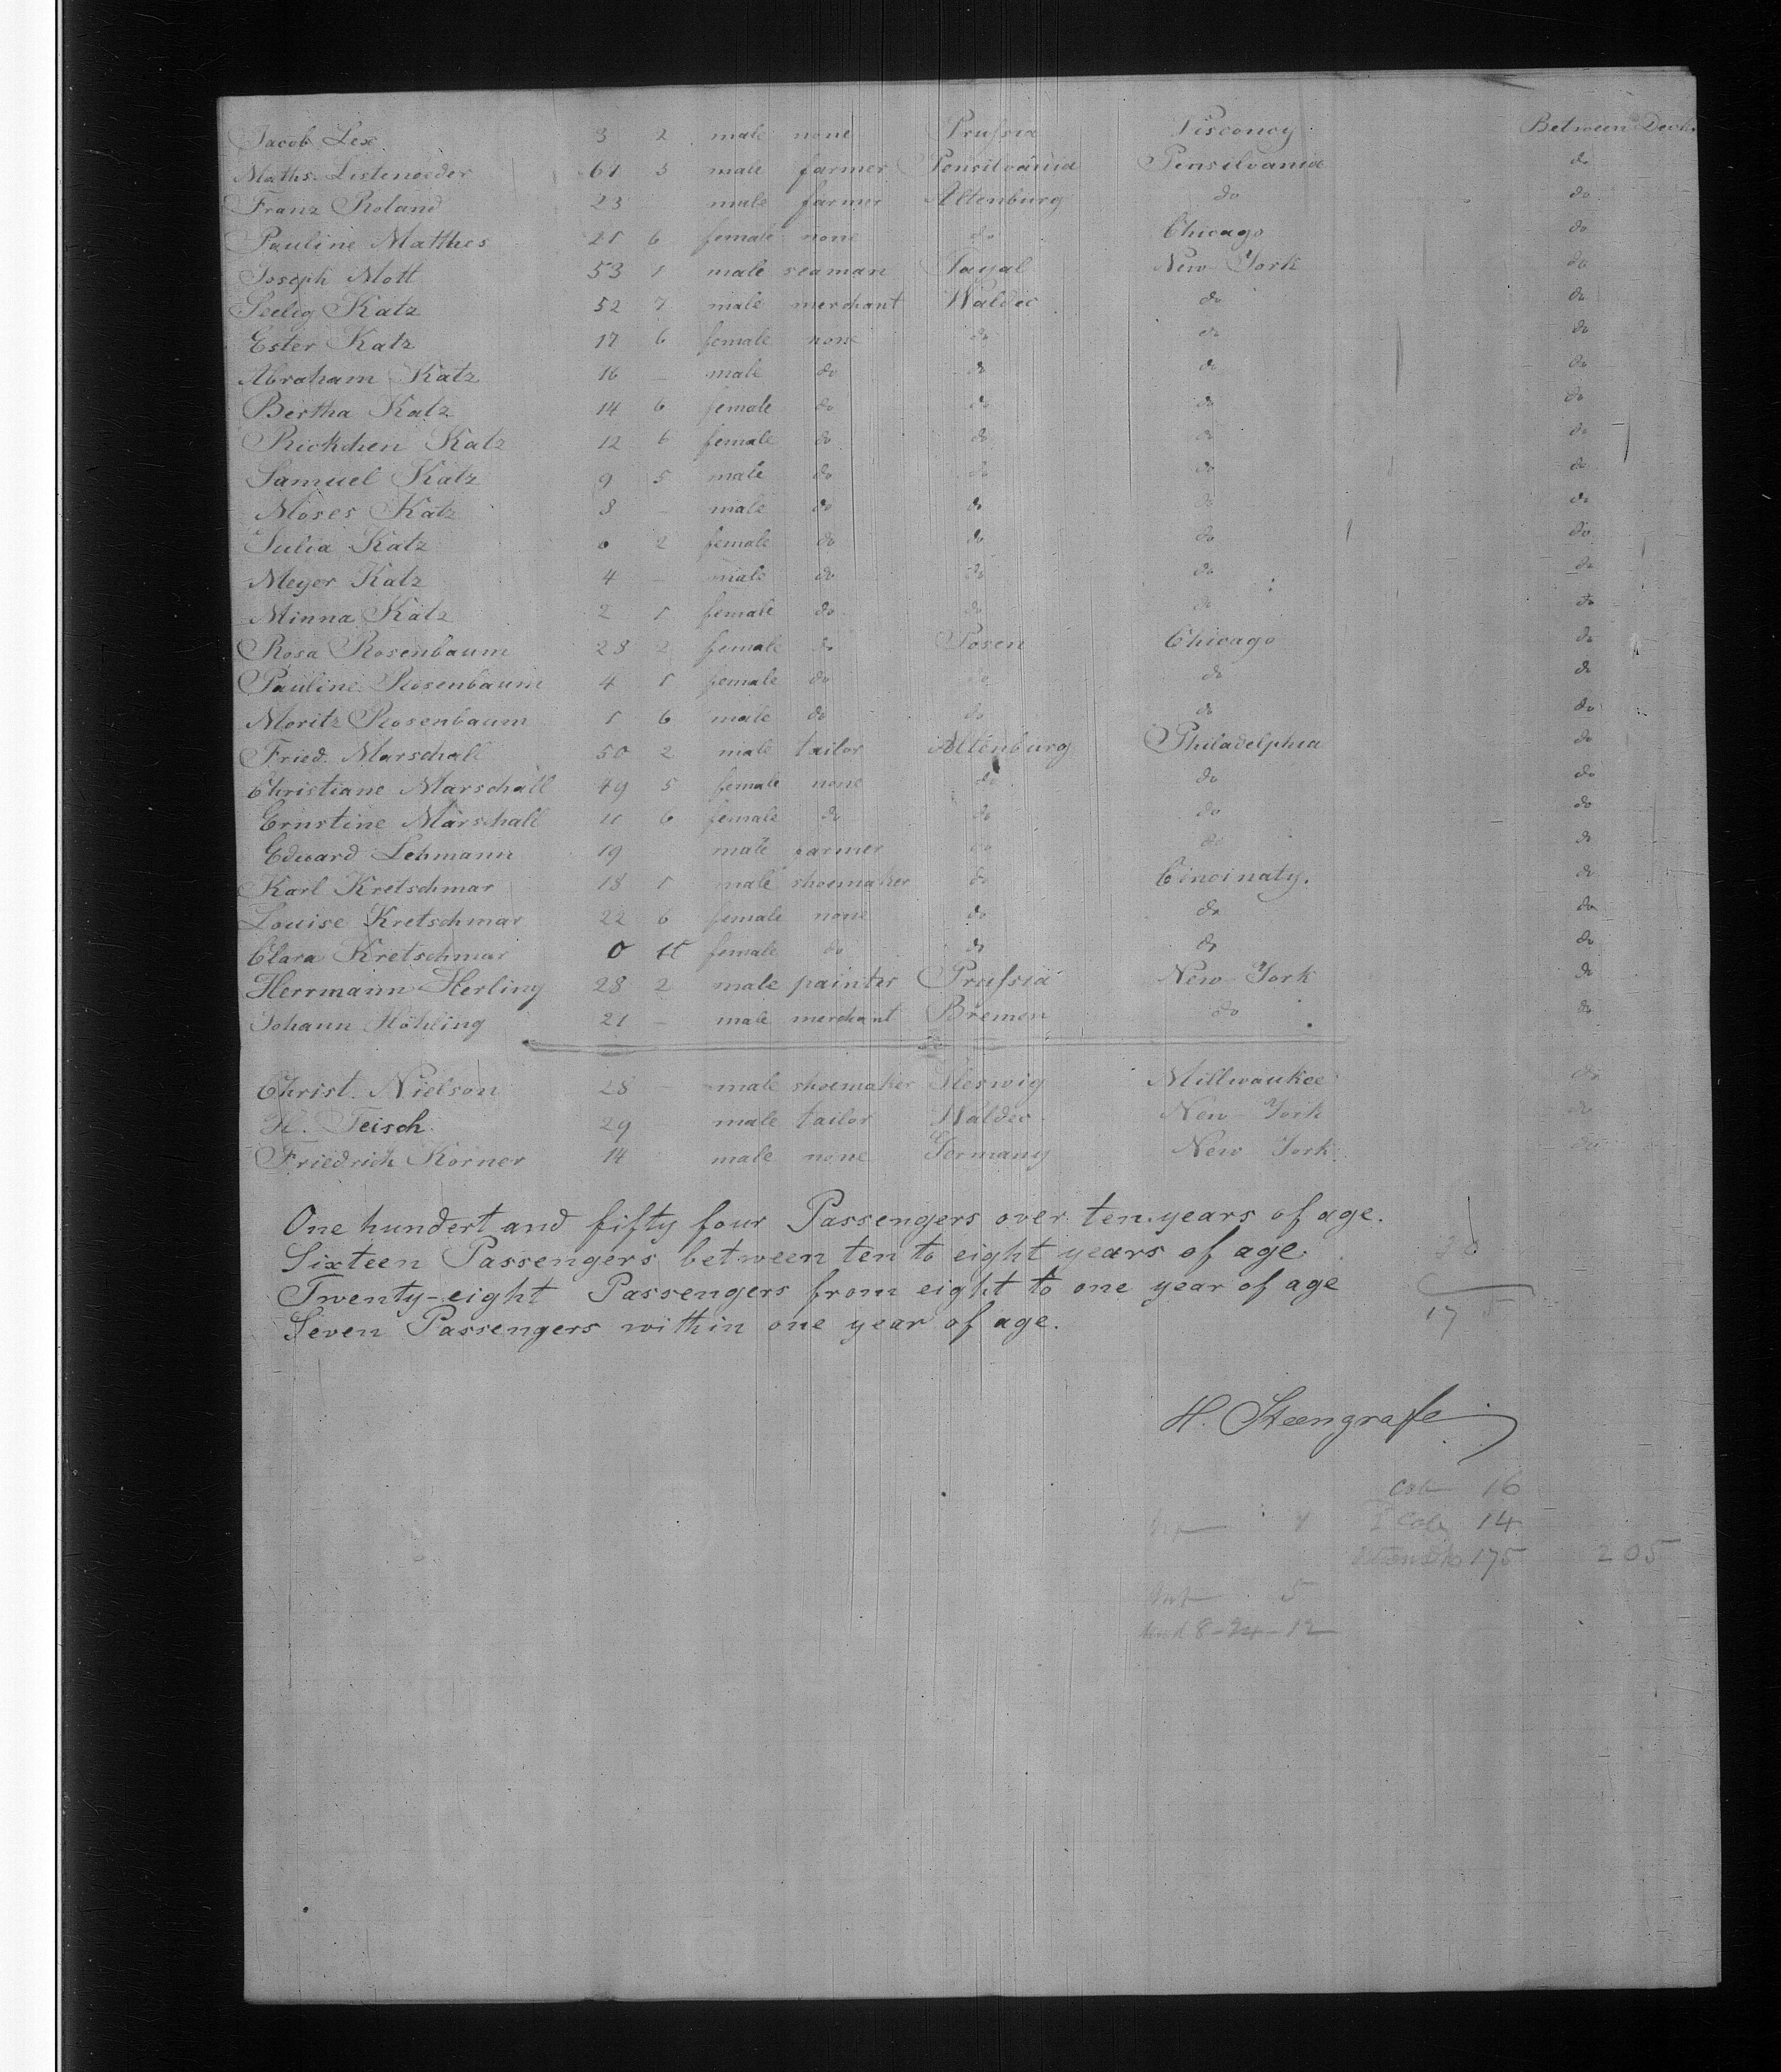 Jacob Lex 3 2 male none Prussia Visconcy Between Deck
Maths. Listeneeder 61 5 male farmer Pensilvania Pensilvania do
Franz Roland 23 male farmer Altenburg do do
Pauline Matthes 21 6 female none do Chicago do
Joseph Mott 53 1 male seaman Fayal New York do
Seelig Katz 52 7 male merchant Waldec do do
Ester Katz 17 6 female none do do do
Abraham Katz 16 – male do do do do
Bertha Katz 14 6 female do do do do
Rickchen Katz 12 6 female do do do do
Samuel Katz 9 5 male do do do do
Moses Katz 8 – male do do do do
Julia Katz 2 female do do do do
Meyer Katz 4 – male do do do do
Minna Katz 2 1 female do do do do
Rosa Rosenbaum 28 2 female do Posen Chicago do
Pauline Rosenbaum 4 1 female do do do do
Moritz Rosenbaum 1 6 male do do do do
Fried. Marschall 50 2 male tailor Altenburg Philadelphia do
Christiane Marschall 49 5 female none do do do
Ernstine Marschall 11 6 female do do do do
Edward Lehmann 19 male farmer do do do
Karl Kretschmar 18 1 male shoemaker do Cincinaty. do
Louise Kretschmar 22 6 female none do do do
Clara Kretschmar 0 11 female do do do do
Herrmann Herling 28 2 male painter Prussia New York do
Johann Höhling 21 – male merchant Bremen do do
Christ. Nielson 28 – male shoemaker Sleswig Millwaukee do
H. Teisch 29 male tailor Waldec New York do
Friedrich Korner 14 male none Germany New York do
One hundert and fifty four Passengers over ten years of age.
Sixteen Passengers between ten to eight years of age.
Twenty-eight Passengers from eight to one year of age
Seven Passengers within one year of age.
17
H. Steengrafe
Cab 16
2 Cab 14
175 205
Inf 5
8 – 24 – 12